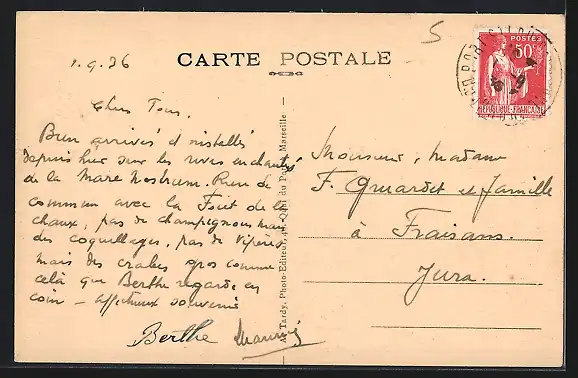 5
1.9.36
CARTE POSTALE
POSTES
50c
REPUBLIQUE FRANCAISE
Chers Tous,
Bien arrivés et installés
depuis hier sur les rives enchantés
de la Mare Nostrum. Rien de
commun avec la Foret de la
chaux, pas de champignons mais
des coquillages, pas de Vipères
mais des crabes gros comme
celà que Berthe regarde en
coin - affectueux souvenirs
Berthe Maurice
A. Tardy, Photo-Editeur, Quai du Port, Marseille
Monsieur, Madame
F. et famille
à Fraisans.
Jura.